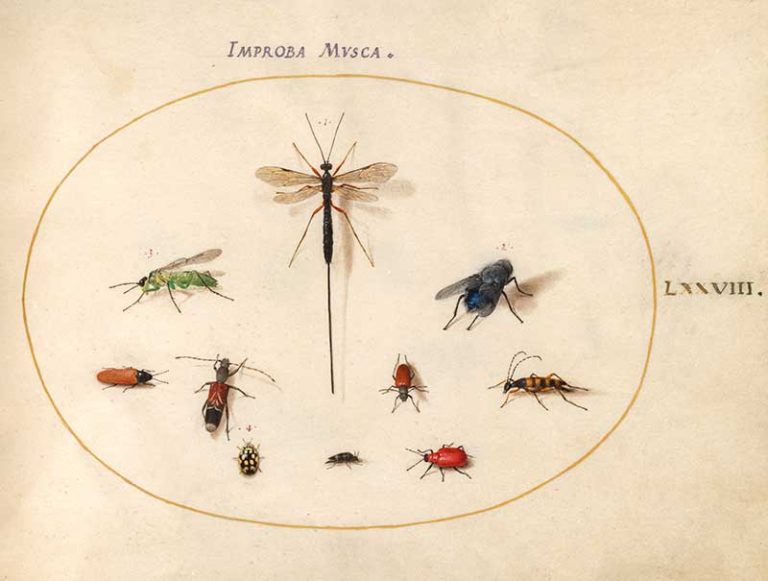 IMPROBA MVSCA.
·1·
·3·
·2·
LXXVIII.
·4·